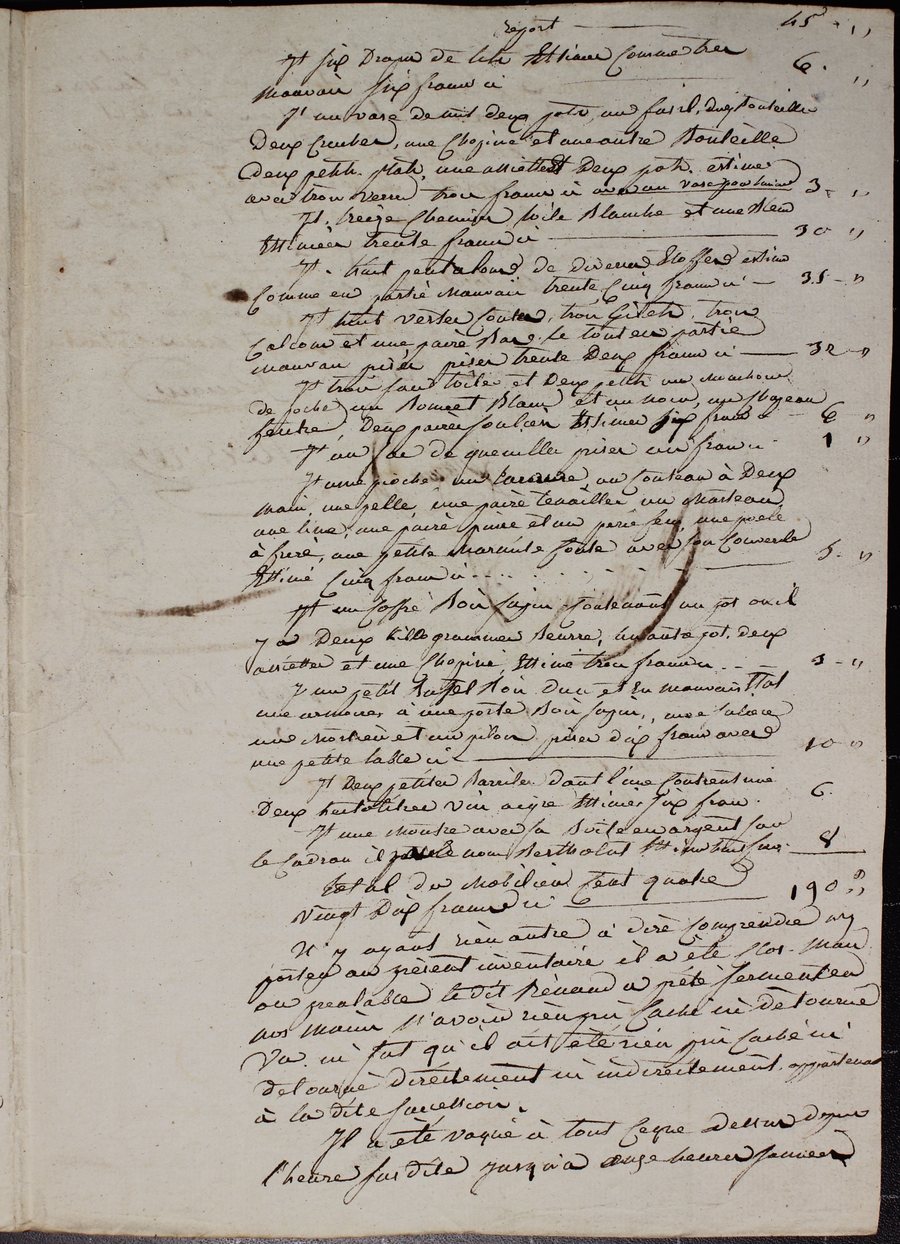 report 45 ,,
Jt six Draps de lit Estimer Comme tres
mauvais six francs ci 6 ,,
Jt un vase de nuit deux pots, un fusil, cinq Bouteilles
Deux Cruches, une Chopine et une autre Bouteille
deux petits plats, une assiette Deux pots estimer
avec trois verres trois francs ci avec un vase pour 3 ,,
Jt treize Chemises toile Blanche et une Bleu
Estimées trente francs ci 30 ,,
Jt huit pentalons de diverses Etoffes estimé
Comme en partie mauvais trente Cinq francs ci 35 ,,
Jt huit vestes Coutes, trois Gilets, trois
Calcons et une paire Bas, le tout en partie
mauvais priser trente Deux francs ci 32 ,,
Jt trois toile et Deux petits mouchoirs
de poche un Bonnet Blanc et un noir, un Chapeau
feutre, Deux paires souliers Estimer six francs 6 ,,
Jt un sac de guenilles priser un franc ci 1 ,,
Jt une pioche, un un Couteau à Deux
mains, une pelle, une paire tenailles un marteau
une lime, une paire et un une poele
à frire, une petite marmite fonte avec son Couvercle
Estimé Cinq francs ci 5 ,,
Jt un Coffre Bois sapin Contenant un pot ou il
y a Deux killogrammes Beurre, un autre pot, deux
assiettes et une Chopine Estimé trois francs ci 3 ,,
Jt un petit Bois Dur et En mauvais Etat
une armoire à une porte Bois sapin, une saliere
un Mortier et un pilon priser dix francs avec
une petite table ci 10 ,,
Jt Deux petites Barriles dont l'une Contient
Deux litres vin aigre Estimés six francs 6
Jt une Montre avec sa Boite en argent sur
le Cadran il nom Berthelot Est. huit francs 8
total du Mobilier Cent quatre
vingt Dix francs ci 190 ,,
N'y ayant rien autre à dire Comprendre ny
porter au présent inventaire il a été Clos. Mais
au prealable ledit Renaud a prété serment en
nos mains N'avoir rien pris Caché ni détourné
Vu ni sut qu'il ait été rien pris Caché ni
detourné directement ni indirectement appartenant
à la dite succession.
Il a été vaqué à tout Ceque dessus depuis
l'heure susdite jusqu'a onze heures sonnées